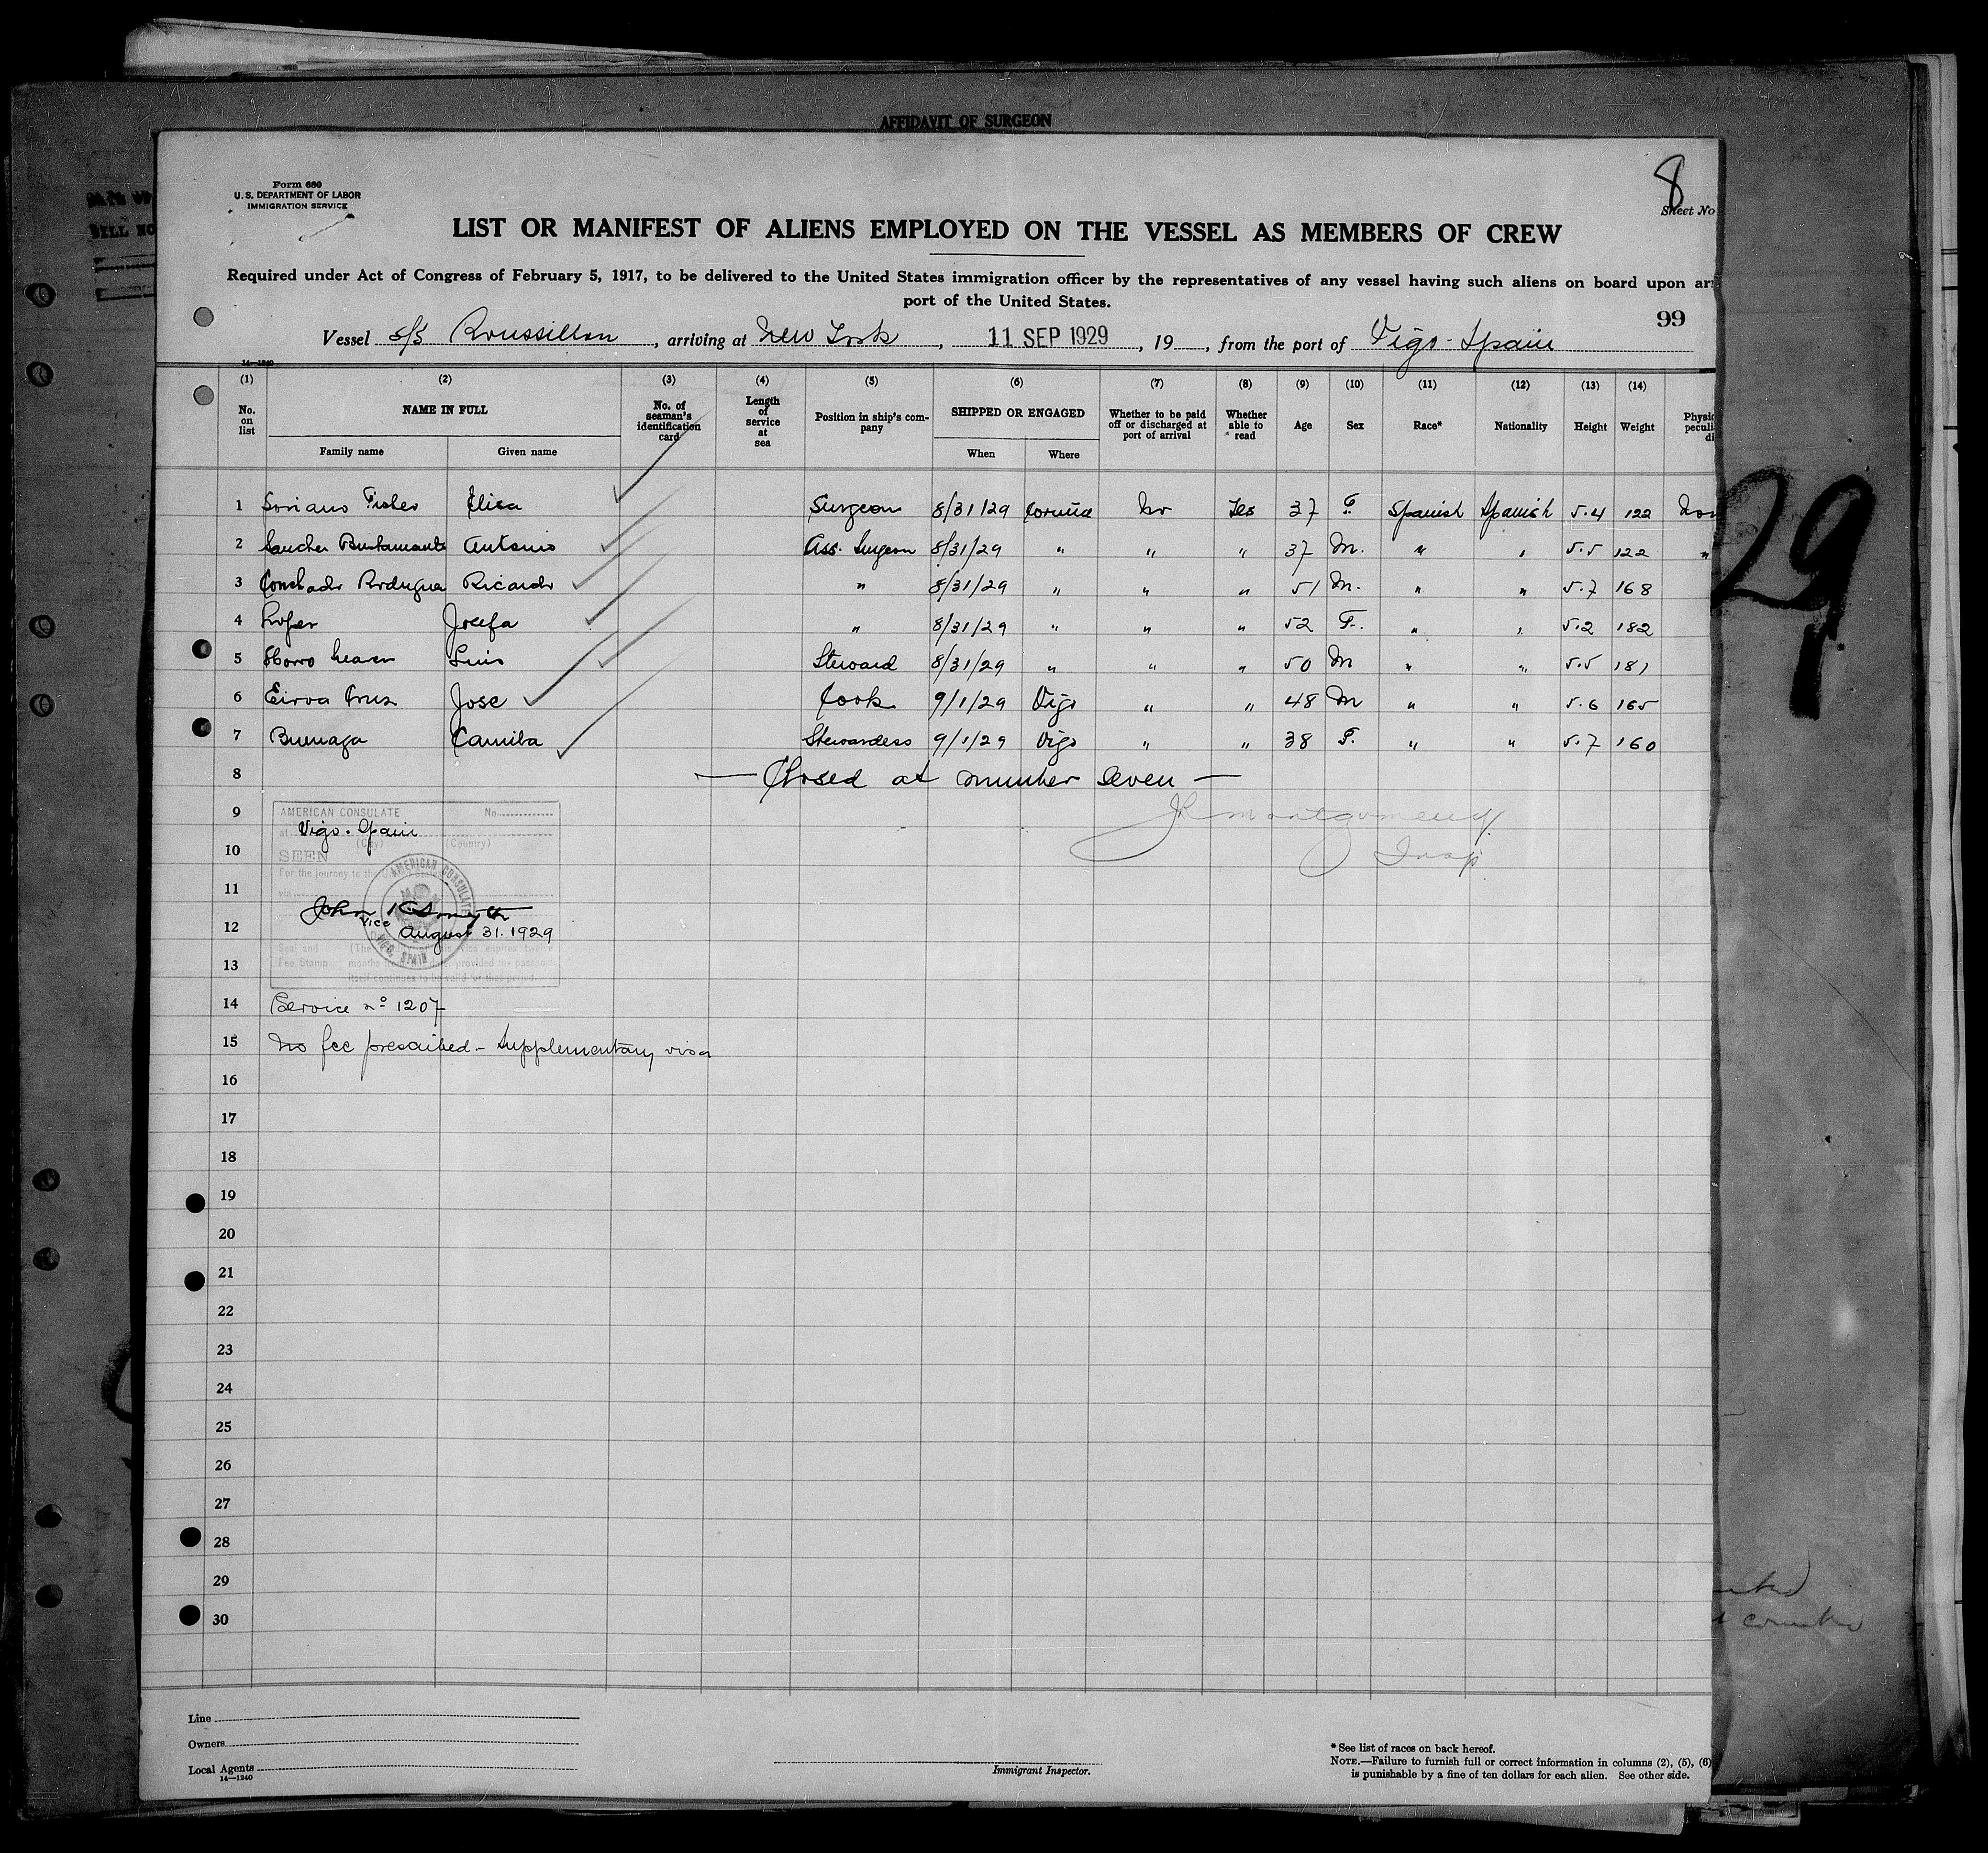 AFFIDAVIT OF SURGEON
8
Form 680
U. S. DEPARTMENT OF LABOR
IMMIGRATION SERVICE
Sheet No
LIST OR MANIFEST OF ALIENS EMPLOYED ON THE VESSEL AS MEMBERS OF CREW
Required under Act of Congress of February 5, 1917, to be delivered to the United States immigration officer by the representatives of any vessel having such aliens on board upon arr
port of the United States.
99
Vessel s/s Roussillon, arriving at New York, 11 SEP 1929, 19, from the port of Vigo - Spain
14—1240
(1) (2) (3) (4) (5) (6) (7) (8) (9) (10) (11) (12) (13) (14)
No. on list NAME IN FULL No. of seaman's identification card Length of service at sea Position in ship's company SHIPPED OR ENGAGED Whether to be paid off or discharged at port of arrival Whether able to read Age Sex Race* Nationality Height Weight Physic peculi di
Family name Given name When Where
1 Soriano Fisher Elisa Surgeon 8/31/29 Coruña No Yes 37 F. Spanish Spanish 5.4 122 Non
2 Sanchez Bustamante Antonio Ass. Surgeon 8/31/29 " " " 37 M. " " 5.5 122 "
3 Conchado Rodrigue Ricardo " 8/31/29 " " " 51 M. " " 5.7 168
4 Lopez Josefa " 8/31/29 " " " 52 F. " " 5.2 182
5 Luis Steward 8/31/29 " " " 50 M " " 5.5 181
6 Eiroa Cruz Jose Cook 9/1/29 Vigo " " 48 M " " 5.6 165
7 Buenaga Camila Stewardess 9/1/29 Vigo " " 38 F. " " 5.7 160
8 — Closed at number seven —
9 AMERICAN CONSULATE No.
JR Montgomery
at Vigo. Spain
(City) (Country)
10 SEEN
Insp
For the journey to the United States
11 via
AMERICAN CONSULATE
VIGO, SPAIN
John K Smyth
Vice
12 August 31. 1929
13 Seal and Fee Stamp
14 Service nº 1207
15 No fee prescribed - Supplementary visa
16
17
18
19
20
21
22
23
24
25
26
27
28
29
30
29
Line
Owners
Local Agents
14—1240
Immigrant Inspector.
* See list of races on back hereof.
NOTE.—Failure to furnish full or correct information in columns (2), (5), (6)
is punishable by a fine of ten dollars for each alien. See other side.